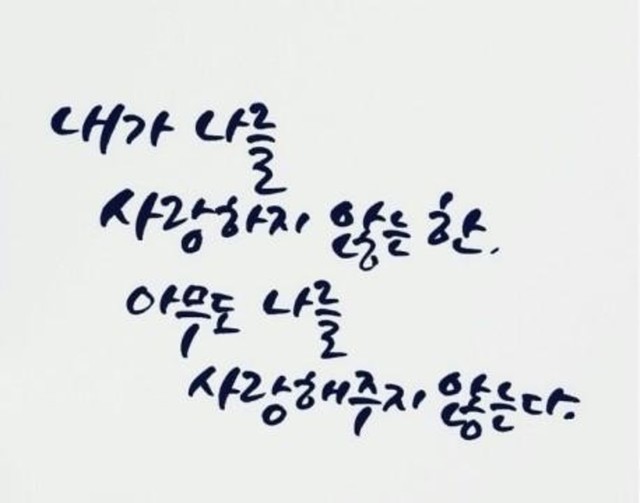 내가 나를
사랑하지 않는 한,
아무도 나를
사랑해주지 않는다.